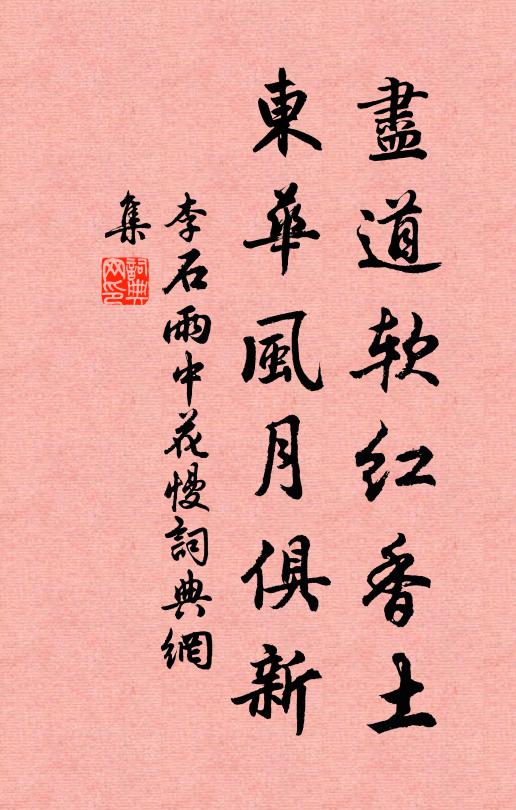 盡道软红香土
東華風月俱新
李石雨中花慢詞典網
集
詞典
网印